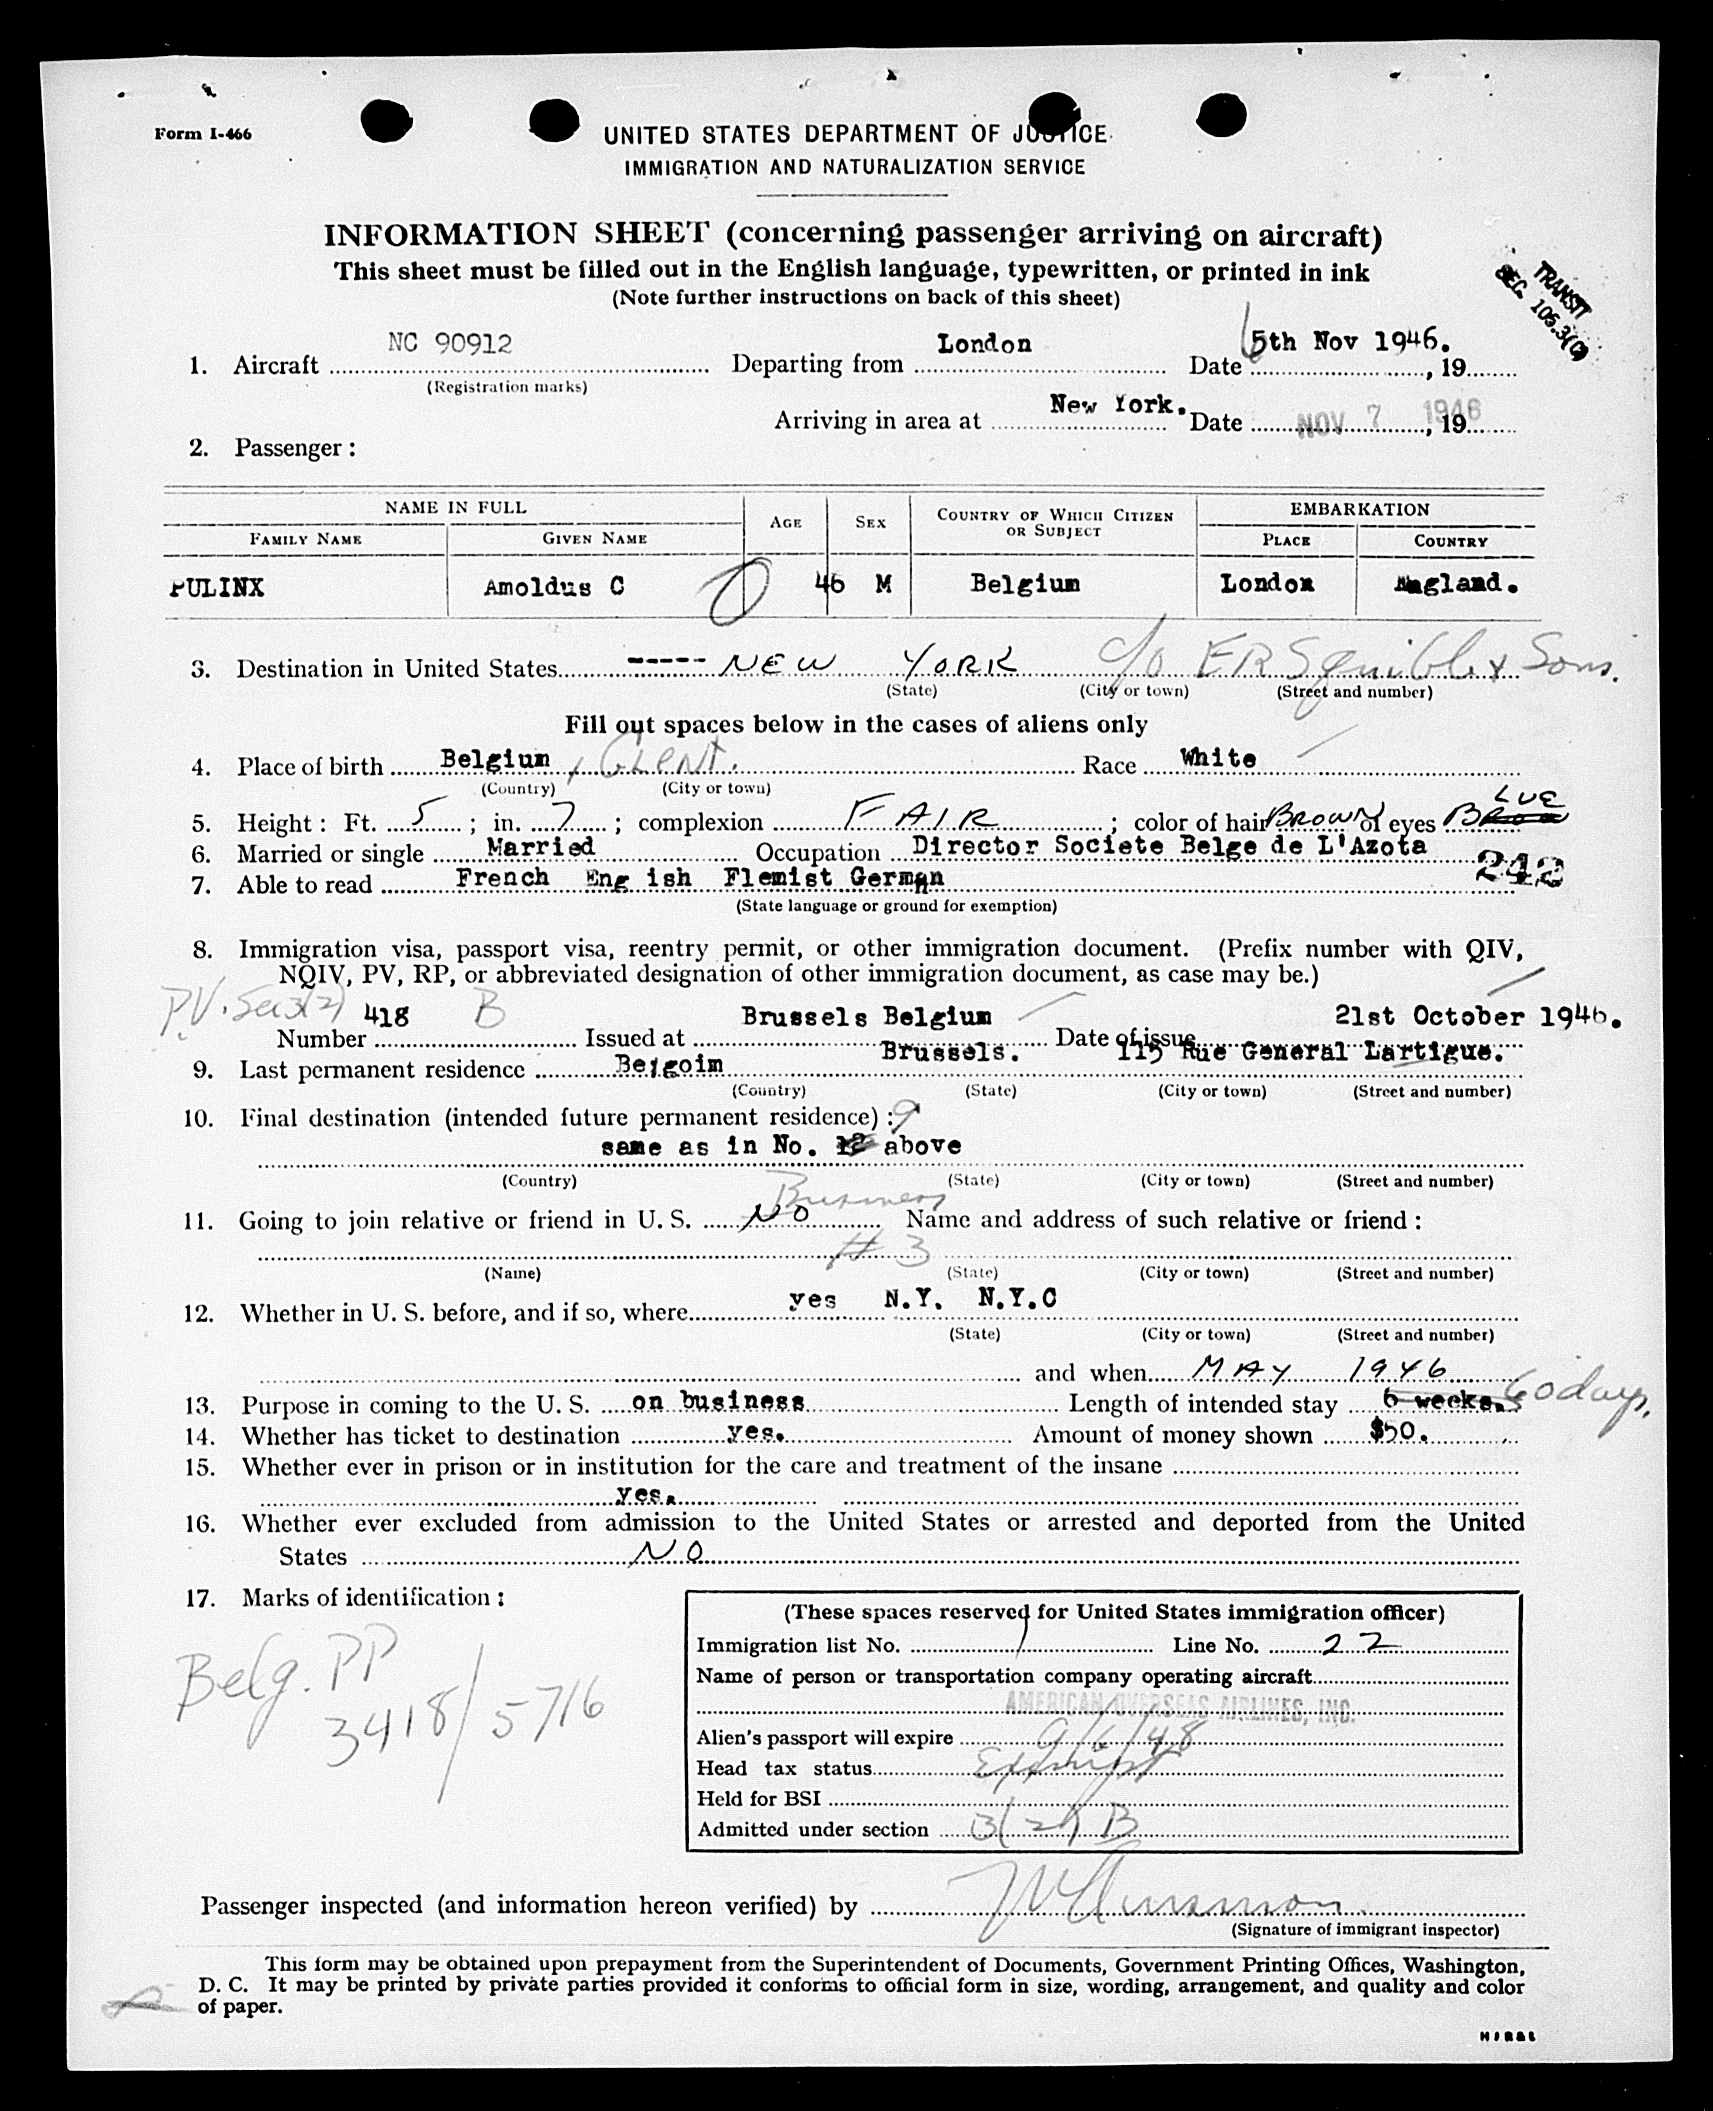 Form I-466
UNITED STATES DEPARTMENT OF JUSTICE
IMMIGRATION AND NATURALIZATION SERVICE
INFORMATION SHEET (concerning passenger arriving on aircraft)
This sheet must be filled out in the English language, typewritten, or printed in ink
(Note further instructions on back of this sheet)
TRANSIT
SEC. 105.3(C)
1. Aircraft NC 90912 Departing from London Date 5th Nov 1946. , 19
(Registration marks)
Arriving in area at New York. Date NOV 7 1946 , 19
2. Passenger :
NAME IN FULL AGE SEX COUNTRY OF WHICH CITIZEN OR SUBJECT EMBARKATION
FAMILY NAME GIVEN NAME PLACE COUNTRY
PULINX Amoldus C 46 M Belgium London England.
3. Destination in United States ----- NEW YORK c/o ER Squibb & Sons.
(State) (City or town) (Street and number)
Fill out spaces below in the cases of aliens only
4. Place of birth Belgium, GENT. Race White
(Country) (City or town)
5. Height : Ft. 5 ; in. 7 ; complexion FAIR ; color of hair BROWN of eyes BLUE
6. Married or single Married Occupation Director Societe Belge de L'Azota
242
7. Able to read French Eng ish Flemist German
(State language or ground for exemption)
8. Immigration visa, passport visa, reentry permit, or other immigration document. (Prefix number with QIV,
NQIV, PV, RP, or abbreviated designation of other immigration document, as case may be.)
PV. Sec 3(2) B
Number 418 Issued at Brussels Belgium Date of issue 21st October 1946.
9. Last permanent residence Belgoim Brussels. 115 Rue General Lartigue.
(Country) (State) (City or town) (Street and number)
10. Final destination (intended future permanent residence) : 9
same as in No. 12 above
(Country) (State) (City or town) (Street and number)
Business
11. Going to join relative or friend in U. S. NO Name and address of such relative or friend :
# 3
(Name) (State) (City or town) (Street and number)
12. Whether in U. S. before, and if so, where yes N.Y. N.Y.C
(State) (City or town) (Street and number)
and when MAY 1946
13. Purpose in coming to the U. S. on business Length of intended stay 6 weeks. 60 days.
14. Whether has ticket to destination yes. Amount of money shown $50.
15. Whether ever in prison or in institution for the care and treatment of the insane
yes.
16. Whether ever excluded from admission to the United States or arrested and deported from the United
States NO
17. Marks of identification :
Belg. PP
3418/5716
(These spaces reserved for United States immigration officer)
Immigration list No. 1 Line No. 22
Name of person or transportation company operating aircraft
AMERICAN OVERSEAS AIRLINES, INC.
Alien's passport will expire 9/6/48
Head tax status Exempt
Held for BSI
Admitted under section 3(2) B
Passenger inspected (and information hereon verified) by
(Signature of immigrant inspector)
This form may be obtained upon prepayment from the Superintendent of Documents, Government Printing Offices, Washington,
D. C. It may be printed by private parties provided it conforms to official form in size, wording, arrangement, and quality and color
of paper.